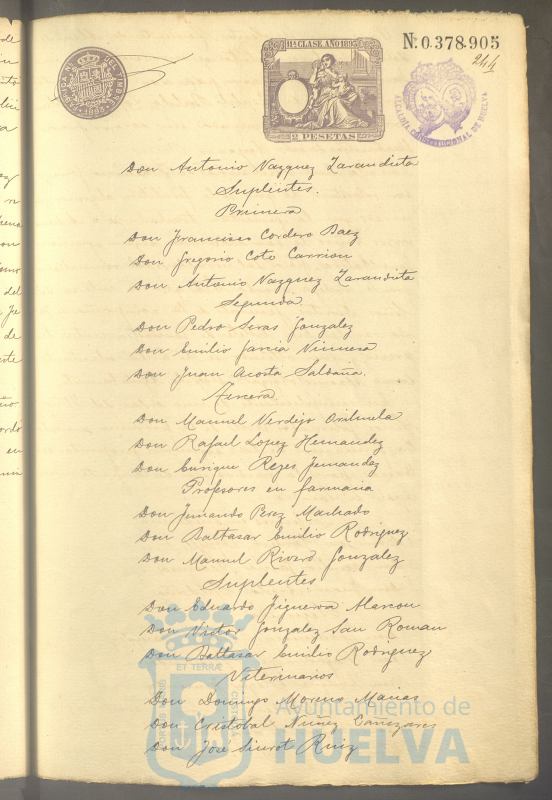 11ª CLASE. AÑO 1895
2 PESETAS
Nº 0.378.905
244
ALCALDIA CONSTITUCIONAL DE HUELVA
Don Antonio Vazquez Zarandieta
Suplentes.
Primera
Don Francisco Cordero Baez
Don Gregorio Coto Carrion
Don Antonio Vazquez Zarandieta
Segunda
Don Pedro Seras Gonzalez
Don Emilio Garcia
Don Juan Acosta Saldaña.
Tercera
Don Manuel Verdejo Orihuela
Don Rafael Lopez Hernandez
Don Enrique Reyes Fernandez
Profesores en farmacia
Don Fernando Perez Machado
Don Baltasar Emilio Rodriguez
Don Manuel Rivero Gonzalez
Suplentes
Don Eduardo Figueroa Alarcon
Don Victor Gonzalez San Roman
Don Baltasar Emilio Rodriguez
Veterinarios
Don Domingo Moreno Macias
Don Cristobal Nuñez Cañizares
Don Jose Siurot Ruiz
ET TERRÆ
Ayuntamiento de
HUELVA